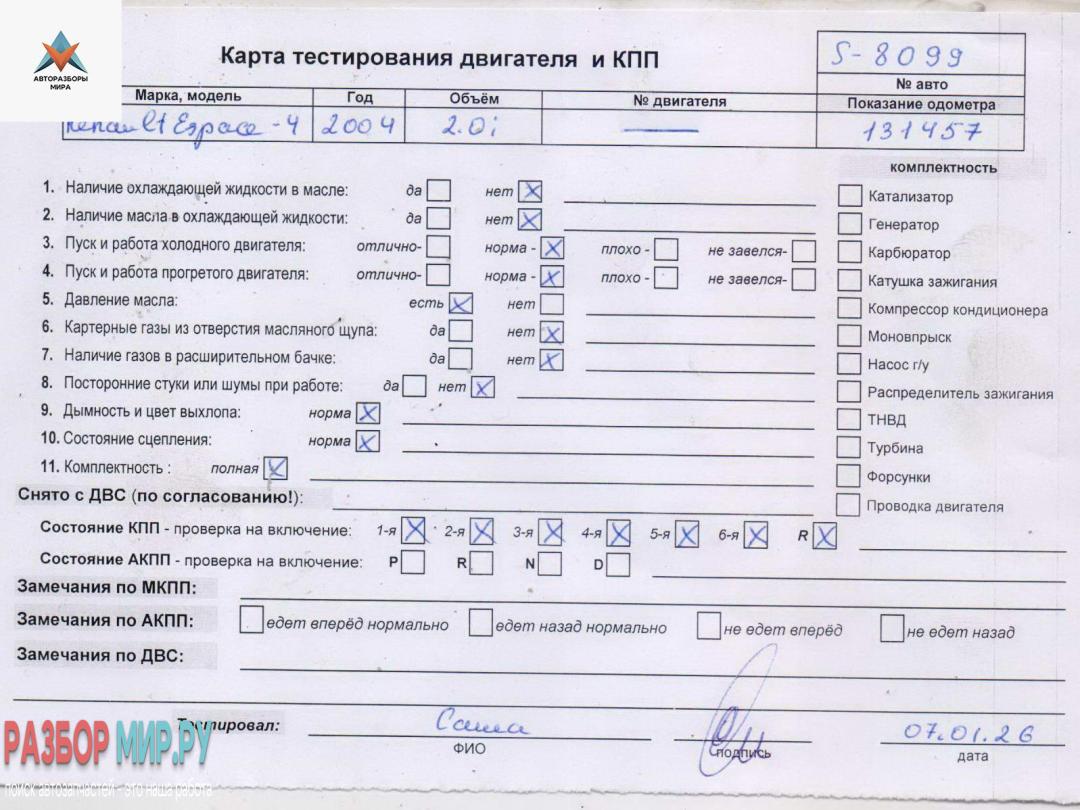 АВТОРАЗБОРЫ
МИРА
Карта тестирования двигателя и КПП
S-8099
№ авто
Марка, модель Год Объём № двигателя Показание одометра
Renault Espace-4 2004 2.0i — 131457
комплектность
1. Наличие охлаждающей жидкости в масле: да нет X Катализатор
2. Наличие масла в охлаждающей жидкости: да нет X Генератор
3. Пуск и работа холодного двигателя: отлично- норма - X плохо - не завелся- Карбюратор
4. Пуск и работа прогретого двигателя: отлично- норма - X плохо - не завелся- Катушка зажигания
5. Давление масла: есть X нет Компрессор кондиционера
6. Картерные газы из отверстия масляного щупа: да нет X Моновпрыск
7. Наличие газов в расширительном бачке: да нет X Насос г/у
8. Посторонние стуки или шумы при работе: да нет X Распределитель зажигания
9. Дымность и цвет выхлопа: норма X ТНВД
10. Состояние сцепления: норма X Турбина
11. Комплектность : полная X Форсунки
Снято с ДВС (по согласованию!): Проводка двигателя
Состояние КПП - проверка на включение: 1-я X 2-я X 3-я X 4-я X 5-я X 6-я X R X
Состояние АКПП - проверка на включение: P R N D
Замечания по МКПП:
Замечания по АКПП: едет вперёд нормально едет назад нормально не едет вперёд не едет назад
Замечания по ДВС:
Тестировал: Саша 07.01.26
ФИО подпись дата
РАЗБОР МИР.РУ
поиск автозапчастей - это наша работа